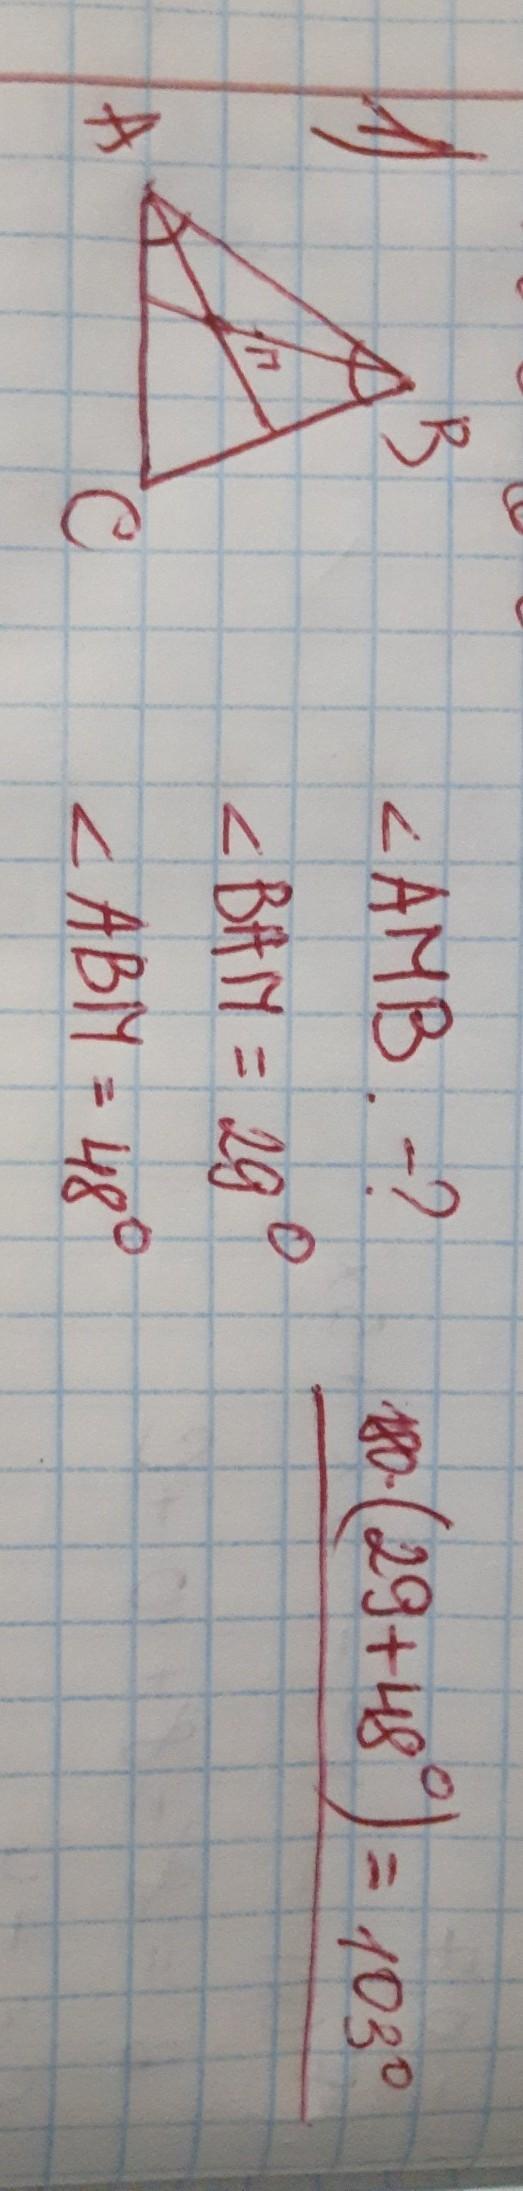 1)
B
A
M
C
< AMB. -?
< BAM = 29°
< ABM = 48°
180-(29+48°) = 103°